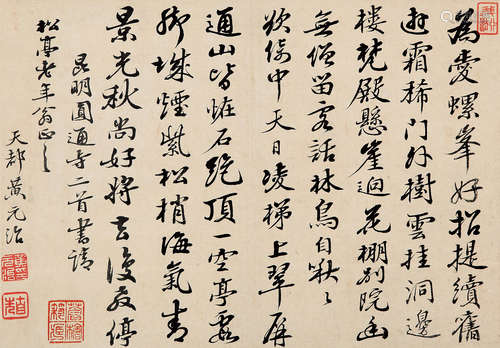 為愛螺峯好招提續舊
遊霜稀門外樹雲挂洞邊
樓梵殿懸崖迥花棚別院幽
無僧留客話林鳥自啾〻
欲倚中天日凌梯上翠屏
通山皆怪石絕頂一空亭霞
腳城煙紫松梢海氣青
景光秋尚好將去復停
昆明圓通寺二首書請
松亭老年翁正之
天都黃元治